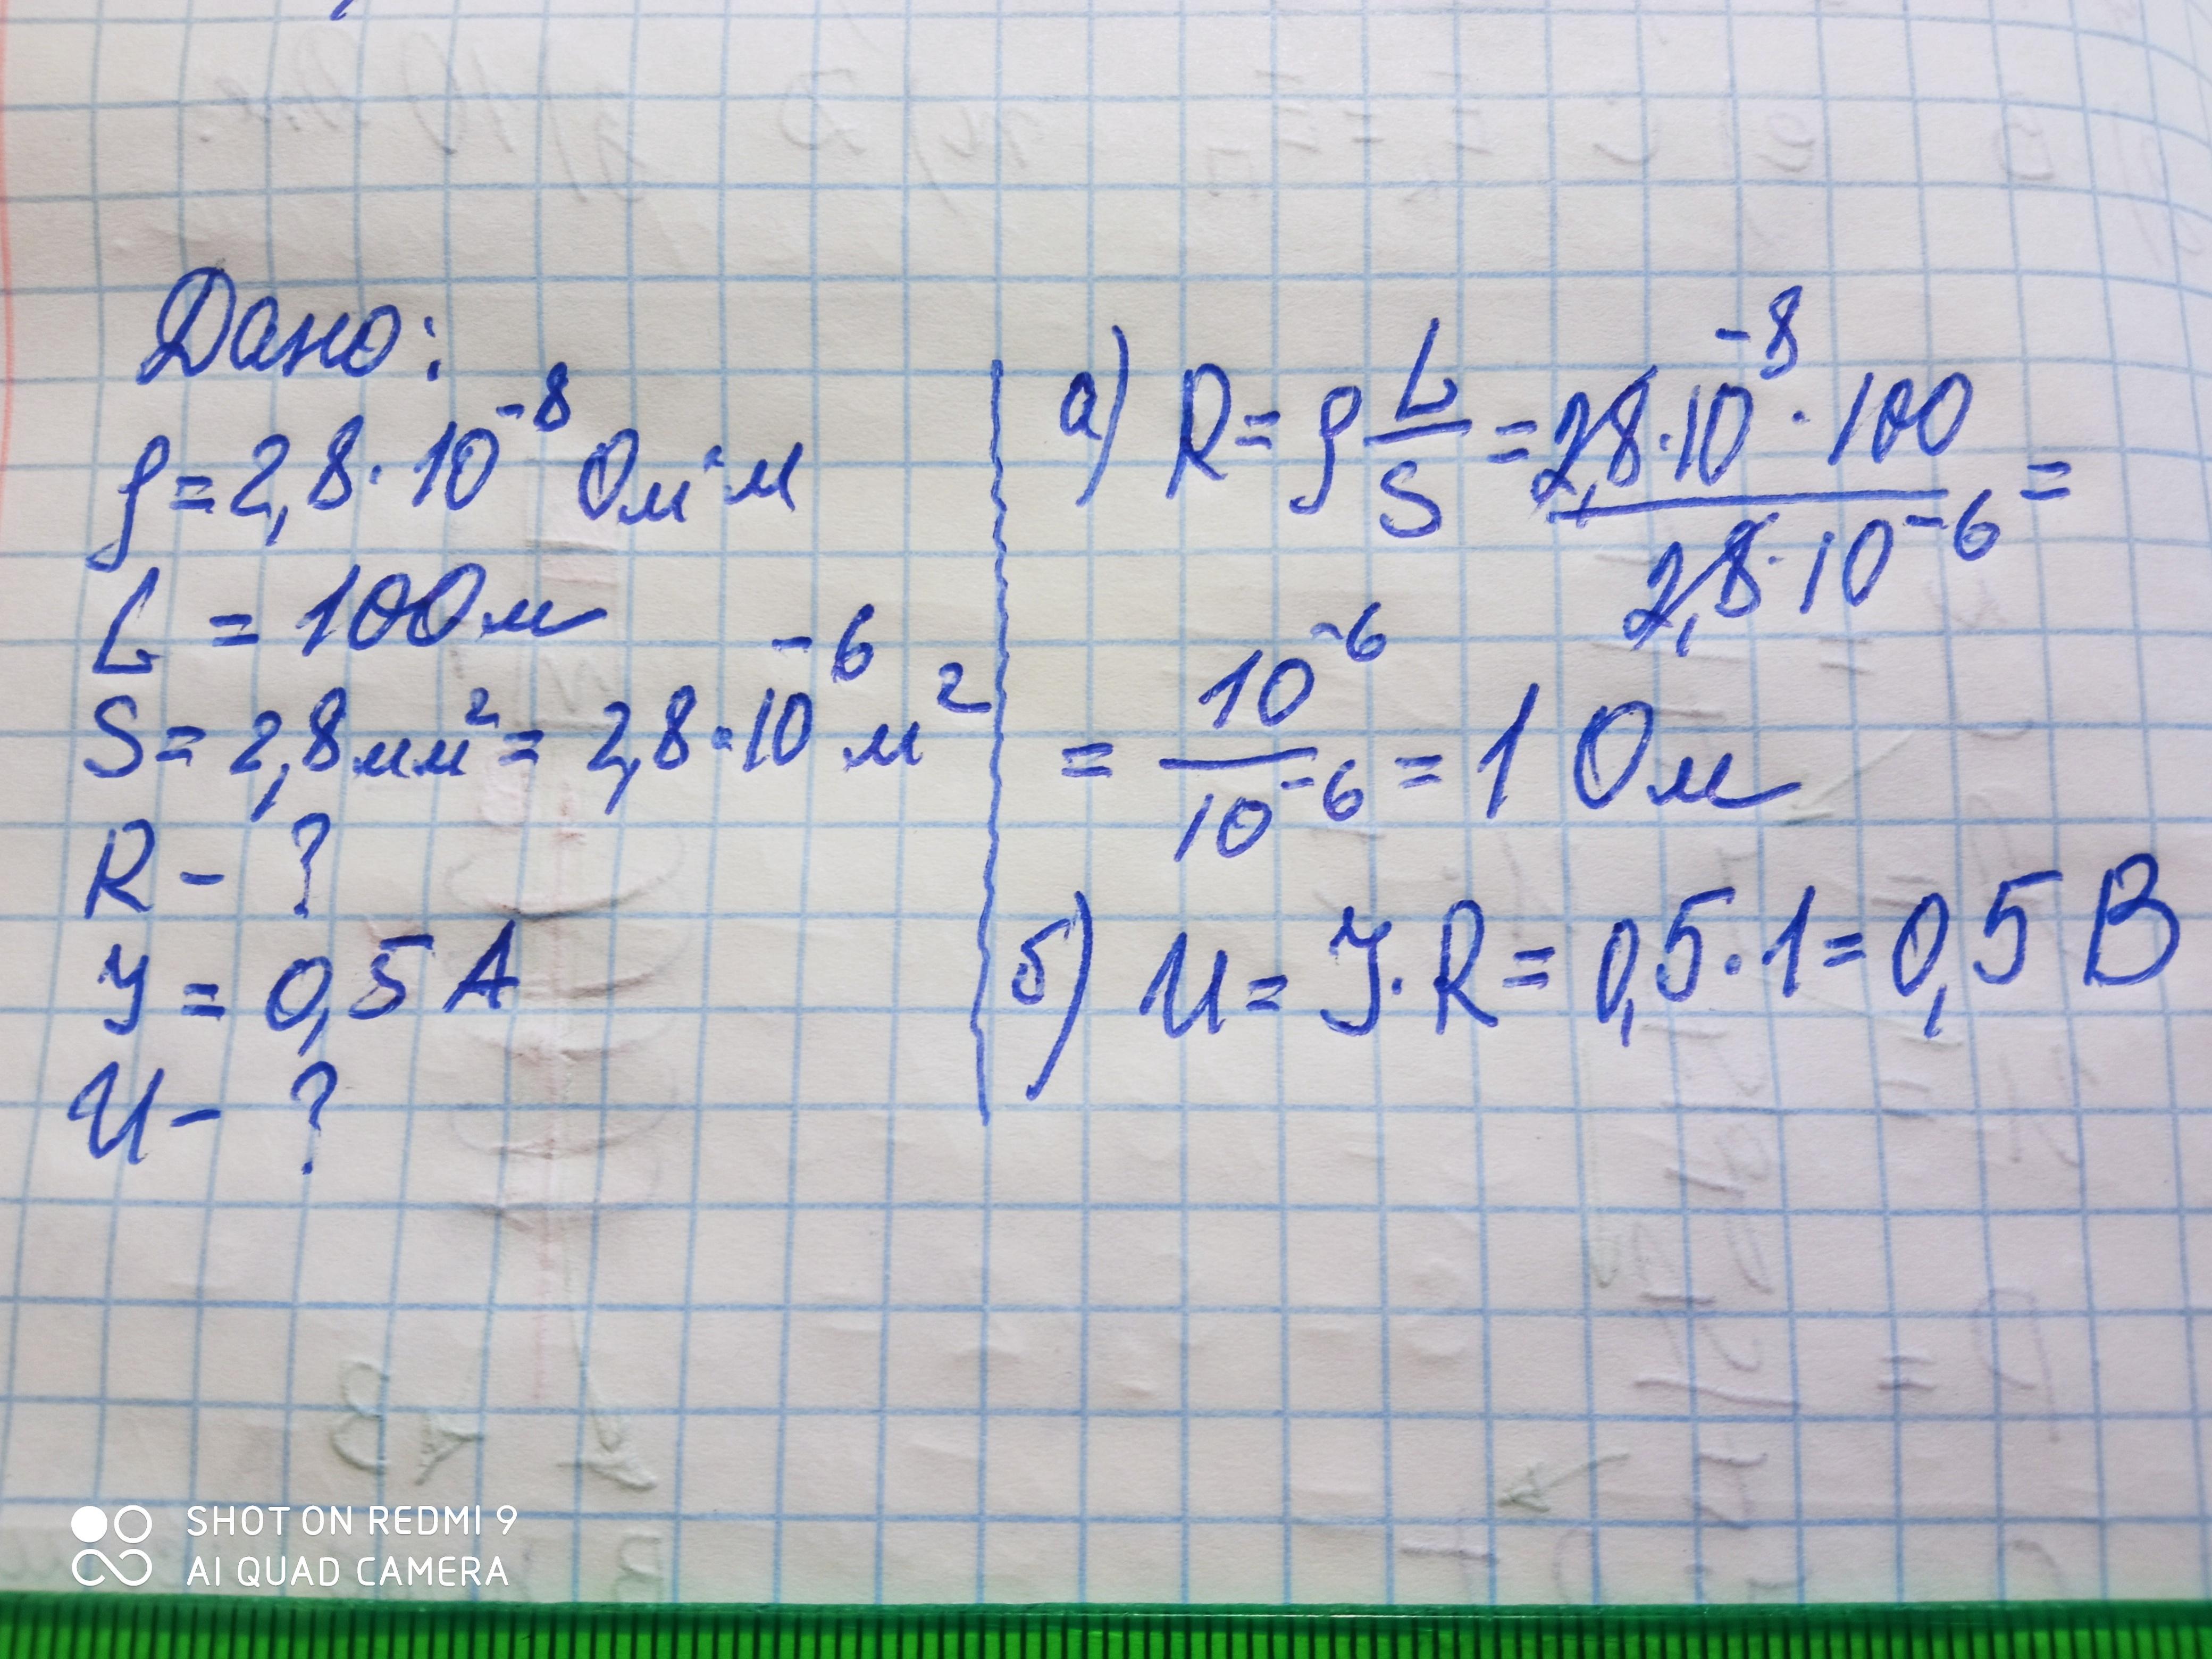 Дано:
ρ = 2,8 · 10⁻⁸ Ом · м
L = 100 м
S = 2,8 мм² = 2,8 · 10⁻⁶ м²
R - ?
У = 0,5 А
U - ?
а) R = ρ L/S = 2,8 · 10⁻⁸ · 100 / 2,8 · 10⁻⁶ =
= 10⁻⁶ / 10⁻⁶ = 1 Ом
б) U = У · R = 0,5 · 1 = 0,5 В
SHOT ON REDMI 9
AI QUAD CAMERA